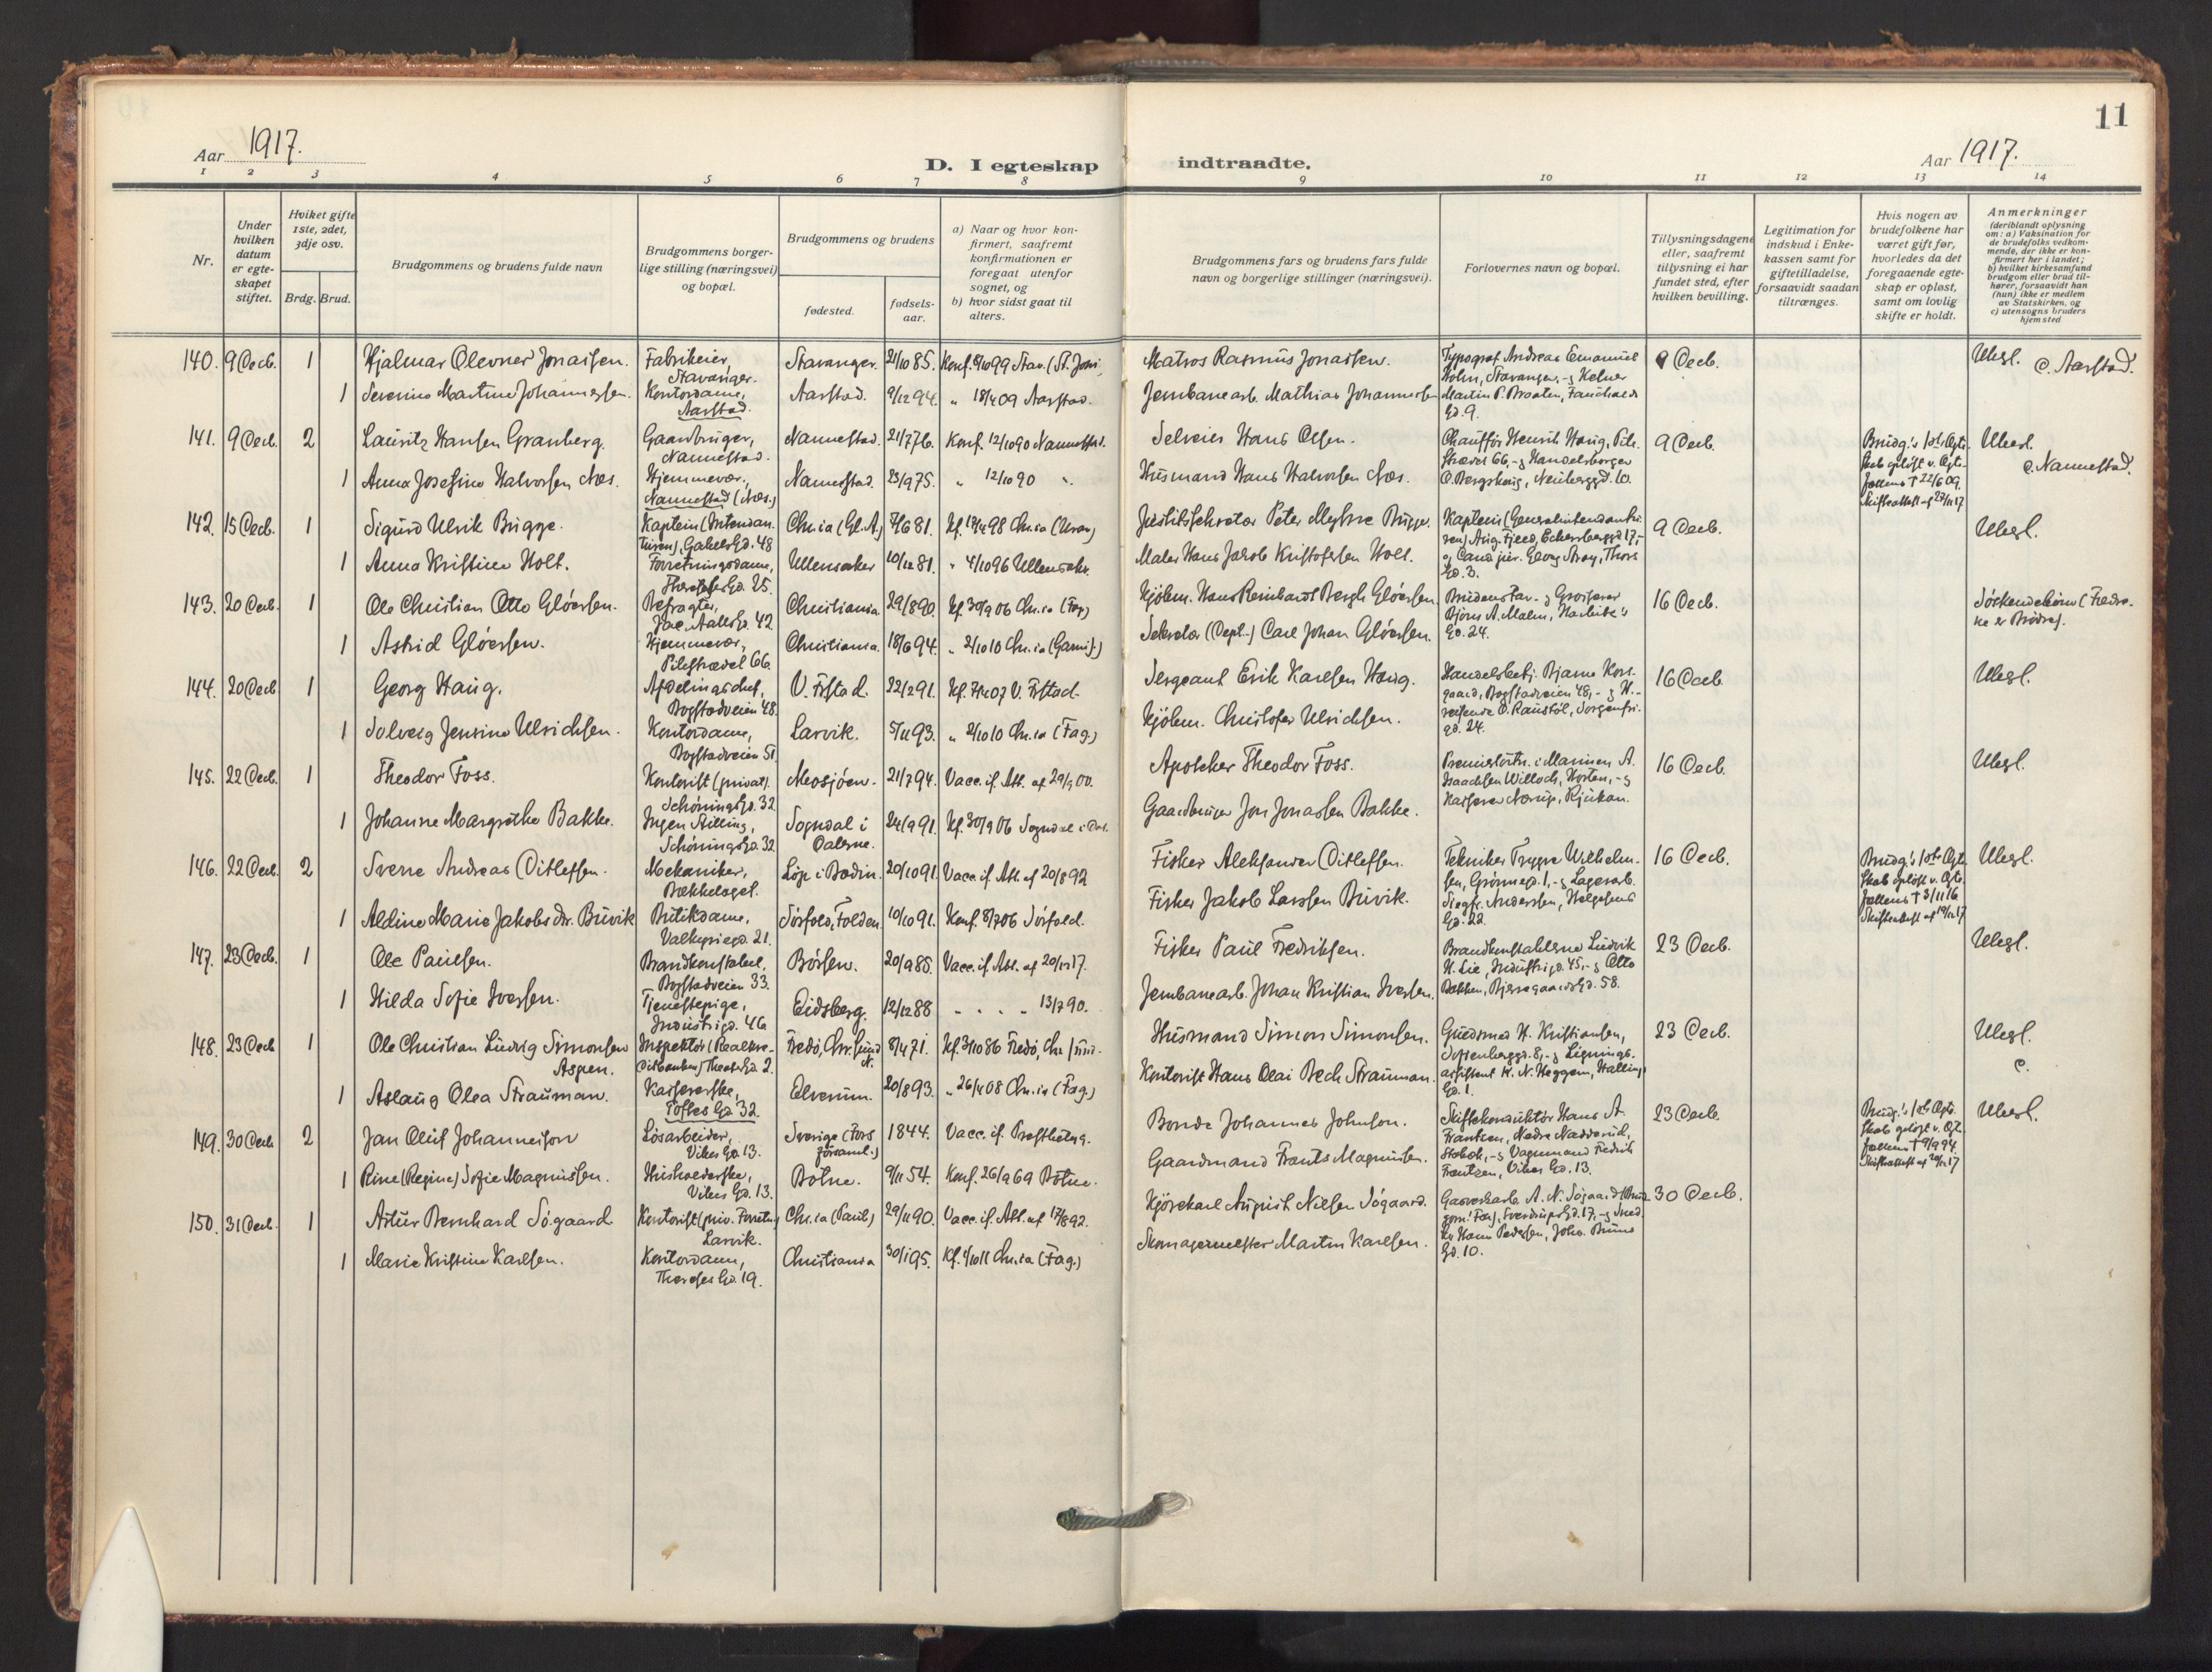 11
Aar 1917.
D. I egteskap indtraadte.
Aar 1917.
1 2 3 4 5 6 7 8 9 10 11 12 13 14
Nr.
Under hvilken datum er egteskapet stiftet.
Hviket gifte 1ste, 2det, 3dje osv.
Brdg. Brud.
Brudgommens og brudens fulde navn
Brudgommens borgerlige stilling (næringsvei) og bopæl.
Brudgommens og brudens
fødested.
fødselsaar.
a) Naar og hvor konfirmert, saafremt konfirmationen er foregaat utenfor sognet, og
b) hvor sidst gaat til alters.
Brudgommens fars og brudens fars fulde navn og borgerlige stillinger (næringsvei).
Forlovernes navn og bopæl.
Tillysningsdagene eller, saafremt tillysning ei har fundet sted, efter hvilken bevilling.
Legitimation for indskud i Enkekassen samt for giftetilladelse, forsaavidt saadan tiltrænges.
Hvis nogen av brudefolkene har været gift før, hvorledes da det foregaaende egteskap er opløst, samt om lovlig skifte er holdt.
Anmerkninger (deriblandt oplysning om: a) Vaksination for de brudefolks vedkommende, der ikke er konfirmert her i landet; b) hvilket kirkesamfund brudgom eller brud tilhører, forsaavidt han (hun) ikke er medlem av Statskirken, og c) utensogns bruders hjemsted
140. 9 Decb. 1 Hjalmar Olevner Jonassen. Fabrikeier, Stavanger. Stavanger. 21/10 85. Konf. 8/10 99 Stav. Matros Rasmus Jonassen. Typograf Andreas Emanuel Holm, Stavanger, - og Kelner Martin P. Braaten, Fauchalds Gd. 9. 9 Decb. Ubesl. c. Aarstad.
1 Severine Martine Johannessen. Kontordame, Aarstad. Aarstad. 9/12 94. " 18/4 09 Aarstad. Jernbanearb. Mathias Johannessen
141. 9 Decb. 2 Lauritz Hansen Granberg. Gaardbruger, Nannestad. Nannestad. 21/7 76. Konf. 12/10 90 Nannestad. Selveier Hans Olsen. Chauffør Henrik Haug, Pilestrædet 66, - og Handelsborger O. Bergskaug, Neuberggd. 10. 9 Decb. Brudg.'s 1ste Egteskab opløst v. Egtefællens † 22/6 09. Skifteattest af 27/11 17 Ubesl. c. Nannestad.
1 Anna Josefine Halvorsen Næs. Hjemmevær., Nannestad (Næs.) Nannestad. 23/9 75. " 12/10 90 ". Husmand Hans Halvorsen Næs.
142. 15 Decb. 1 Sigurd Ulrik Brugge. Kaptein (Intendanturen), Gabels Gd. 48 Chr.ia (Gl. A.) 7/6 81. Kf. 17/4 98 Chr.ia (Uran.) Justitssekretær Peter Brugge. 9 Decb. Ubesl.
1 Anna Kristine Holt. Forretningsdame, Thereses Gd. 25. Ullensaker 10/12 81. " 4/10 96 Ullensaker. Maler Hans Jakob Kristofersen Holt.
143. 20 Decb. 1 Ole Christian Otto Glóersen. Befragter, Jac. Aalls Gd. 42 Christiania. 29/8 90. Kf. 30/9 06 Chr.ia (Fag.) Kjøbm. Hans Reinhardt Bergh Glóersen. Brudens Far - og Grosserer Bjørn A. Malm, Gd. 24. 16 Decb. Søskendebørn (Fædrene er Brødre).
1 Astrid Glóersen. Hjemmevær., Pilestrædet 66. Christiania. 18/6 94. " 2/10 10 Chr.ia (Garnis.) Sekretær (Dept.) Carl Johan Glóersen.
144. 20 Decb. 1 Georg Haug. Afdelingschef, Bogstadveien 48. V. Fstad. 22/2 91. Kf. 7/4 07 V. Fstad. Sergeant Erik Karlsen Haug. Handelsbetj. Bjarne Korsgaard, Bogstadveien 48, - og H.-reisende O. Raustöl, Sorgenfrigd. 24. 16 Decb. Ubesl.
1 Solveig Jensine Ulrichsen. Kontordame, Bogstadveien 51. Larvik. 5/11 93. " 2/10 10 Chr.ia (Fag.) Kjøbm. Christofer Ulrichsen.
145. 22 Decb. 1 Theodor Foss. Kontorist (privat). Schönings Gd. 32. Mosjöen. 21/7 94. Vacc. if. Att. af 29/9 00. Apoteker Theodor Foss. Premierløitn. i Marinen A. Isaachsen Willoch, Horten, - og Kasserer Nærup, Rjukan. 16 Decb. Ubesl.
1 Johanne Margrethe Bakke. Ingen Stilling, Schönings Gd. 32 Sogndal i Dalerne. 24/9 91. Kf. 30/9 06 Sogndal i Dal. Gaardbruger Jon Jonassen Bakke.
146. 22 Decb. 2 Sverre Andreas Ditlefsen. Mekaniker, Bækkelaget. Löp i Bodin. 20/10 91. Vacc. if. Att. af 20/8 92 Fisker Aleksander Ditlefsen. Tekniker Trygve Wilhelmsen, Grønnegd. 1, - og Lagerarb. Sigfr. Anderssen, Helgesens Gd. 22. 16 Decb. Brudg.'s 1ste Egteskab opløst v. Egtefællens † 3/11 16 Skifteattest af 19/12 17 Ubesl.
1 Aldine Marie Jakobsdr. Buvik Butikdame, Valkyriegd. 21. Sörfold, Folden. 10/10 91. Konf. 8/7 06 Sörfold. Fisker Jakob Larssen Buvik.
147. 23 Decb. 1 Ole Paulsen. Brandkonstabel, Bogstadveien 33. Börsen. 20/9 85. Vacc. if. Att. af 20/12 17. Fisker Paul Fredriksen. Brandkonstablerne Ludvik H. Lie, Industrigd. 45, - og Otto Bakken, Bjerregaards Gd. 58. 23 Decb. Ubesl.
1 Hilda Sofie Iversen. Tjenestepige, Industrigd. 46 Eidsberg. 12/12 88 " " " " 13/7 90. Jernbanearb. Johan Kristian Iversen.
148. 23 Decb. 1 Ole Christian Ludvig Simonsen Aspen. Inspektør (Realkreditbanken) Theatergd. 2. Fredö, Chr.sund N. 8/4 71. Kf. 3/10 86 Fredö, Chr.sund. Husmand Simon Simonsen. Guldsmed H. Kristiansen, Sofienberggd. 8, - og Ligningsassistent H. N. Heggem, Hallings Gd. 1. 23 Decb. Ubesl. c.
1 Aslaug Olea Strauman. Kassererske, Toftes Gd. 32. Elverum. 20/8 93. " 26/4 08 Chr.ia (Fag.) Kontorist Hans Olai Bech Strauman.
149. 30 Decb. 2 Jan Oluf Johanneison Lösarbeider, Vibes Gd. 13. Sverige (Fors församl.) 1844. Vacc. if. Presthetsg. Bonde Johannes Johnson. Skiftekonduktør Hans A. Frantzen, Nedre Nadderud, Stabæk, - og Vognmand Fredrik Frantzen, Vibes Gd. 13. 23 Decb. Brudg.'s 1ste Egteskab opløst v. Egtefællens † 9/9 94. Skifteattest af 20/12 17 Ubesl.
1 Rine (Regine) Sofie Magnussen. Husholderske, Vibes Gd. 13. Botne. 9/11 54. Konf. 26/9 69 Botne. Gaardmand Frants Magnussen.
150. 31 Decb. 1 Artur Bernhard Sógaard Kontorist (priv. Forretn.) Larvik. Chr.ia (Paul.) 29/11 90. Vacc. if. Att. af 17/8 92. Kjørekarl August Nielsen Sógaard. Gasverksarb. A. N. Sógaard (Brudgom. Far), Sverdrups Gd. 17, - og Hans Pedersen, Johs. Bruns Gd. 10. 30 Decb.
1 Marie Kristine Karlsen. Kontordame, Thereses Gd. 19. Christiania 30/1 95. Kf. 1/10 11 Chr.ia (Fag.) Skomagermester Martin Karlsen.